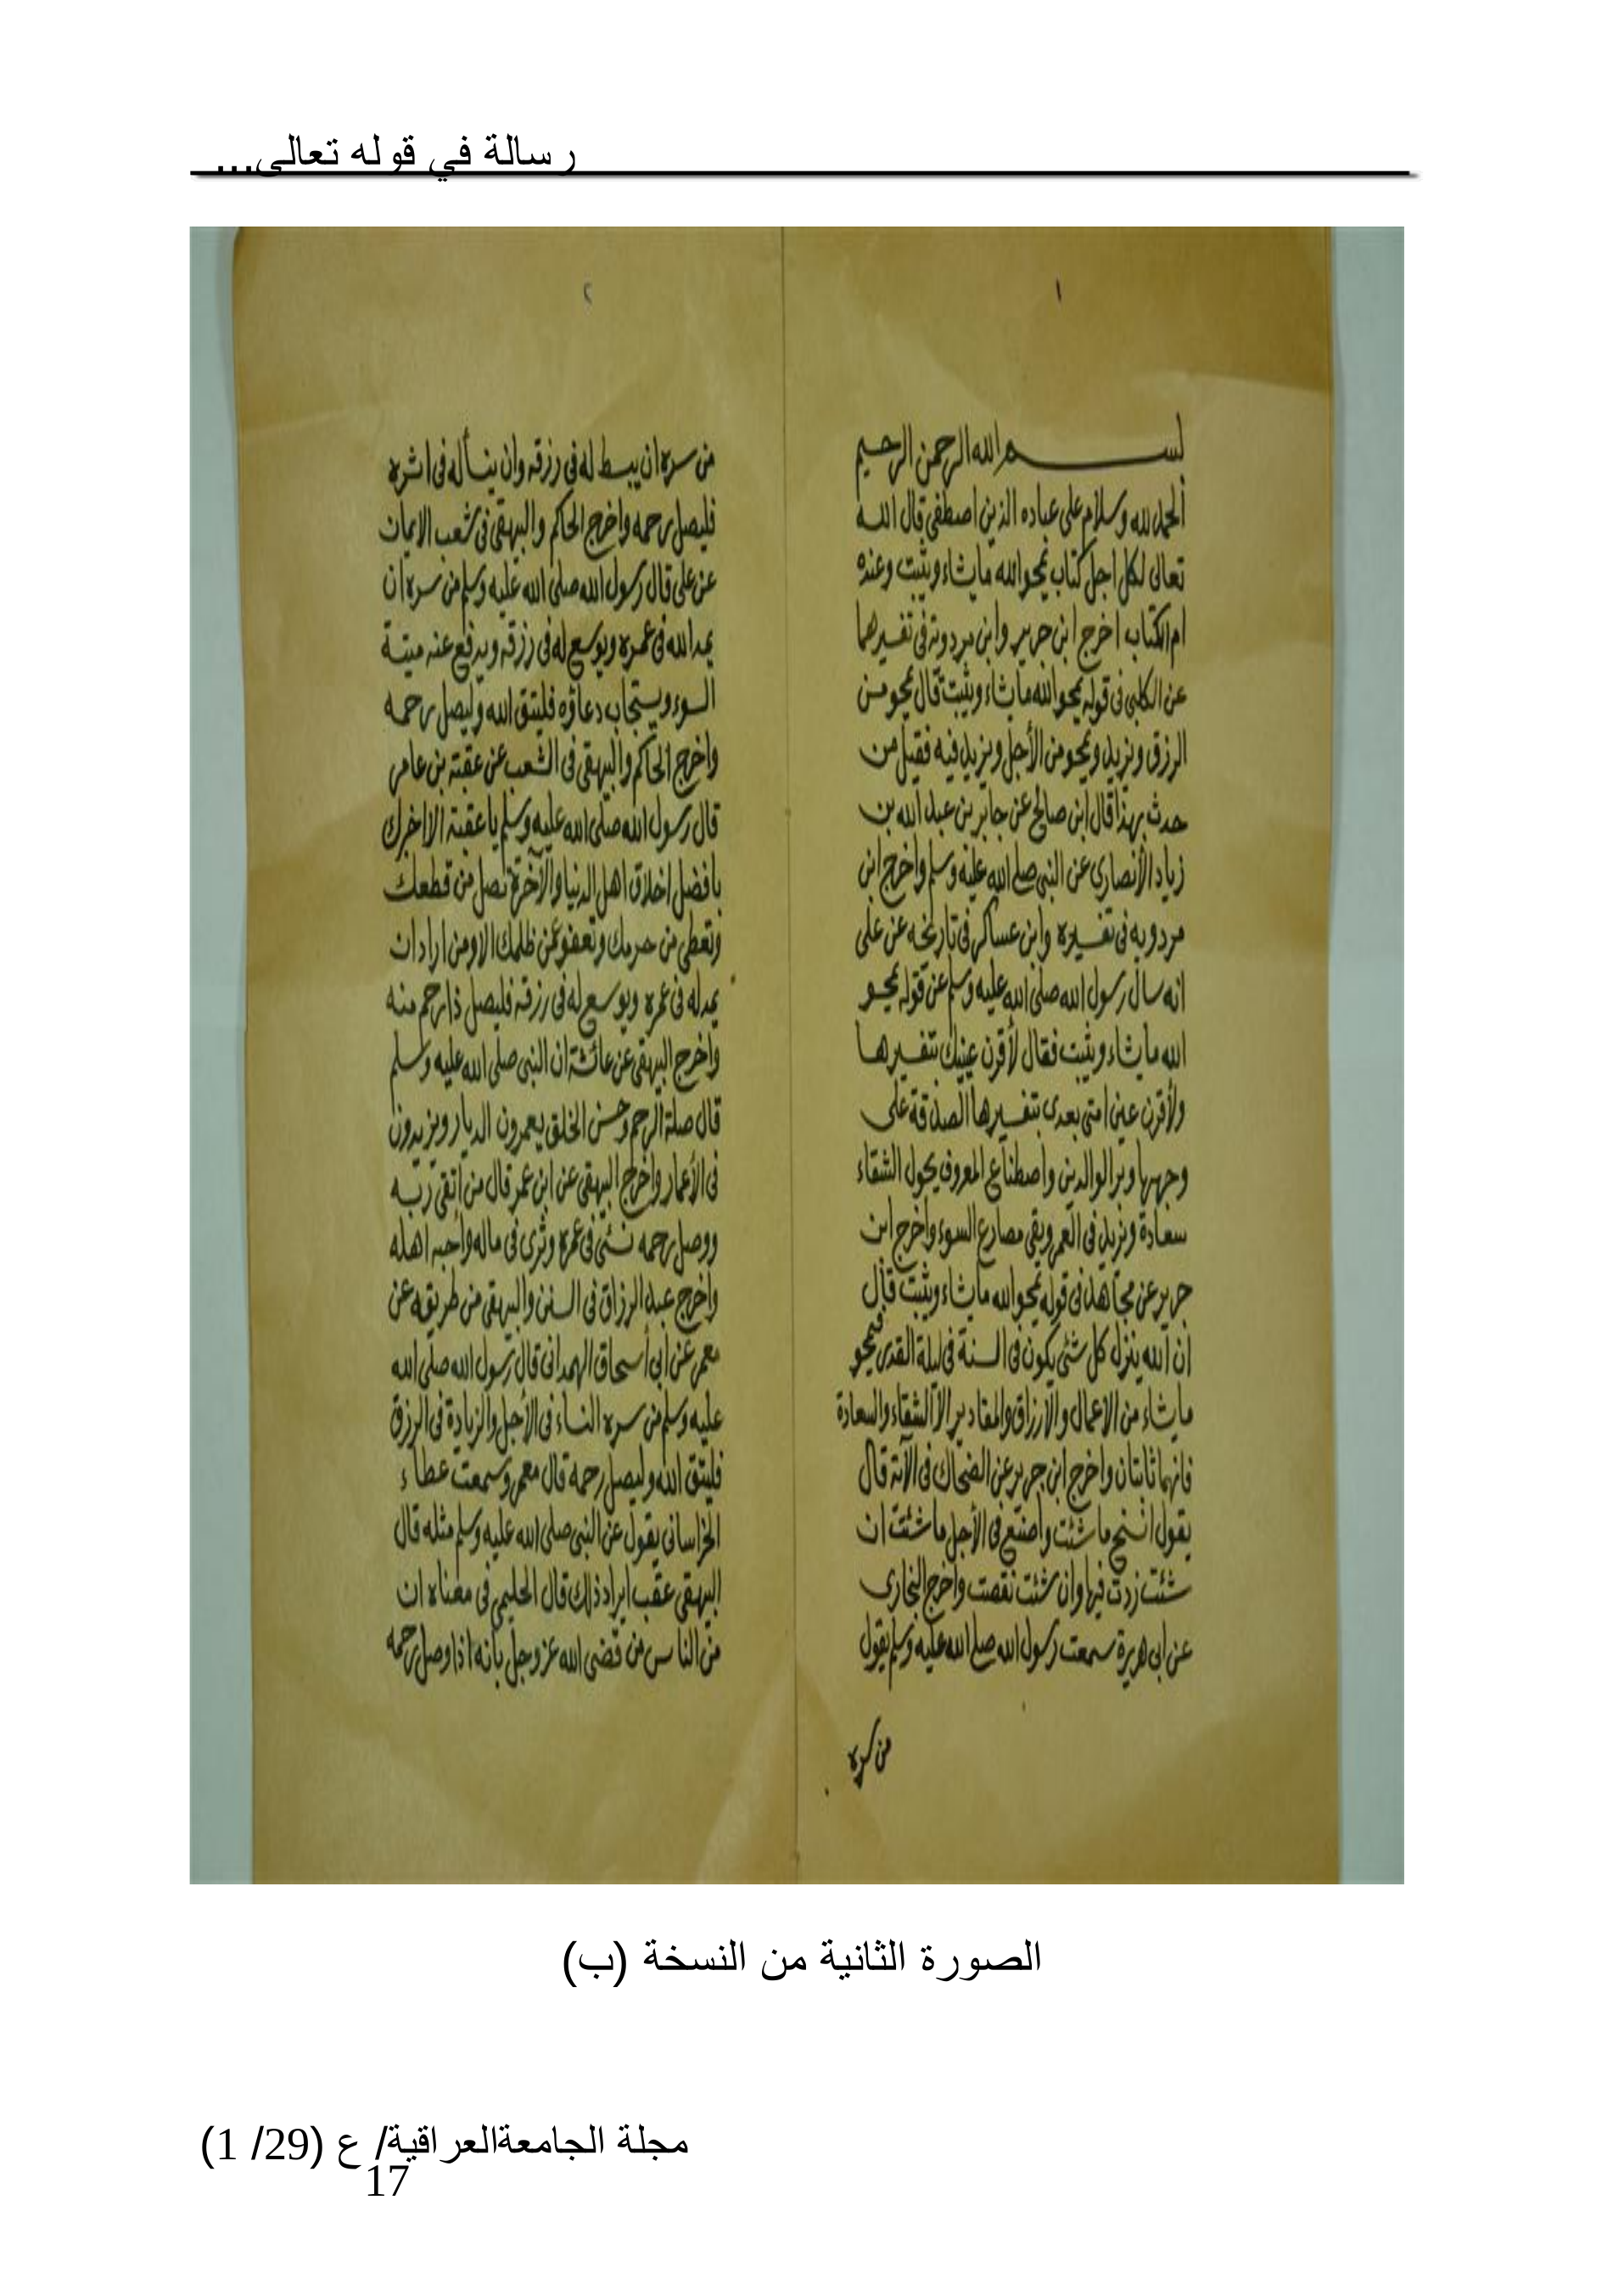 رسالة في قوله تعالى...
١
بسم الله الرحمن الرحيم
الحمد لله وسلام على عباده الذين اصطفى قال الله
تعالى لكل اجل كتاب يمحو الله ما يشاء ويثبت وعنده
ام الكتاب اخرج ابن جرير وابن مردوية فى تفسيرهما
عن الكلبى فى قوله يمحو الله ما يشاء ويثبت قال يمحو من
الرزق ويزيد ويمحو من الأجل ويزيد فيه فقيل من
حدث بهذا قال ابن صالح عن جابر بن عبد الله بن
زياد الأنصارى عن النبى صلى الله عليه وسلم واخرج ابن
مردويه فى تفسيره وابن عساكر فى تاريخه عن على
انه سال رسول الله صلى الله عليه وسلم عن قوله يمحو
الله ما يشاء ويثبت فقال لأقرن عينيك بتفسيرها
ولأقرن عين امتى بعدى بتفسيرها الصدقة على
وجهها وبر الوالدين واصطناع المعروف يحول الشقاء
سعادة ويزيد فى العمر ويقى مصارع السوء واخرج ابن
جرير عن مجاهد فى قوله يمحو الله ما يشاء ويثبت قال
ان الله ينزل كل شئ يكون فى السنة فى ليلة القدر فيمحو
ما يشاء من الاعمال والارزاق والمقادير الا الشقاء والسعادة
فانهما ثابتان واخرج ابن جرير عن الضحاك فى الآية قال
يقول انسخ ما شئت واصنع فى الأجل ما شئت ان
شئت زدت فيها وان شئت نقصت واخرج البخارى
عن ابى هريرة سمعت رسول الله صلى الله عليه وسلم يقول
من سره
٢
من سره ان يبسط له فى رزقه وان ينسأ له فى اثره
فليصل رحمه واخرج الحاكم والبيهقى فى شعب الايمان
عن على قال رسول الله صلى الله عليه وسلم من سره ان
يمد الله فى عمره ويوسع له فى رزقه ويدفع عنه ميتة
السوء ويستجاب دعاؤه فليتق الله وليصل رحمه
واخرج الحاكم والبيهقى فى الشعب عن عقبة بن عامر
قال رسول الله صلى الله عليه وسلم يا عقبة الا اخبرك
بافضل اخلاق اهل الدنيا والآخرة تصل من قطعك
وتعطى من حرمك وتعفو عمن ظلمك الا ومن اراد ان
يمد له فى عمره ويوسع له فى رزقه فليصل ذا رحم منه
واخرج البيهقى عن عائشة ان النبى صلى الله عليه وسلم
قال صلة الرحم وحسن الخلق يعمرون الديار ويزيدون
فى الأعمار واخرج البيهقى عن ابن عمر قال من اتقى ربه
ووصل رحمه نسئ فى عمره وثرى فى ماله واحبه اهله
واخرج عبد الرزاق فى السنن والبيهقى من طريقه عن
معمر عن ابى اسحاق الهمدانى قال رسول الله صلى الله
عليه وسلم من سره النساء فى الأجل والزيادة فى الرزق
فليتق الله وليصل رحمه قال معمر وسمعت عطاء
الخراسانى يقول عن النبى صلى الله عليه وسلم مثله قال
البيهقى عقب ايراد ذلك قال الحليمى فى معناه ان
من الناس من قضى الله عز وجل بأنه اذا وصل رحمه
الصورة الثانية من النسخة (ب)
مجلة الجامعةالعراقية/ ع (29/ 1)
17